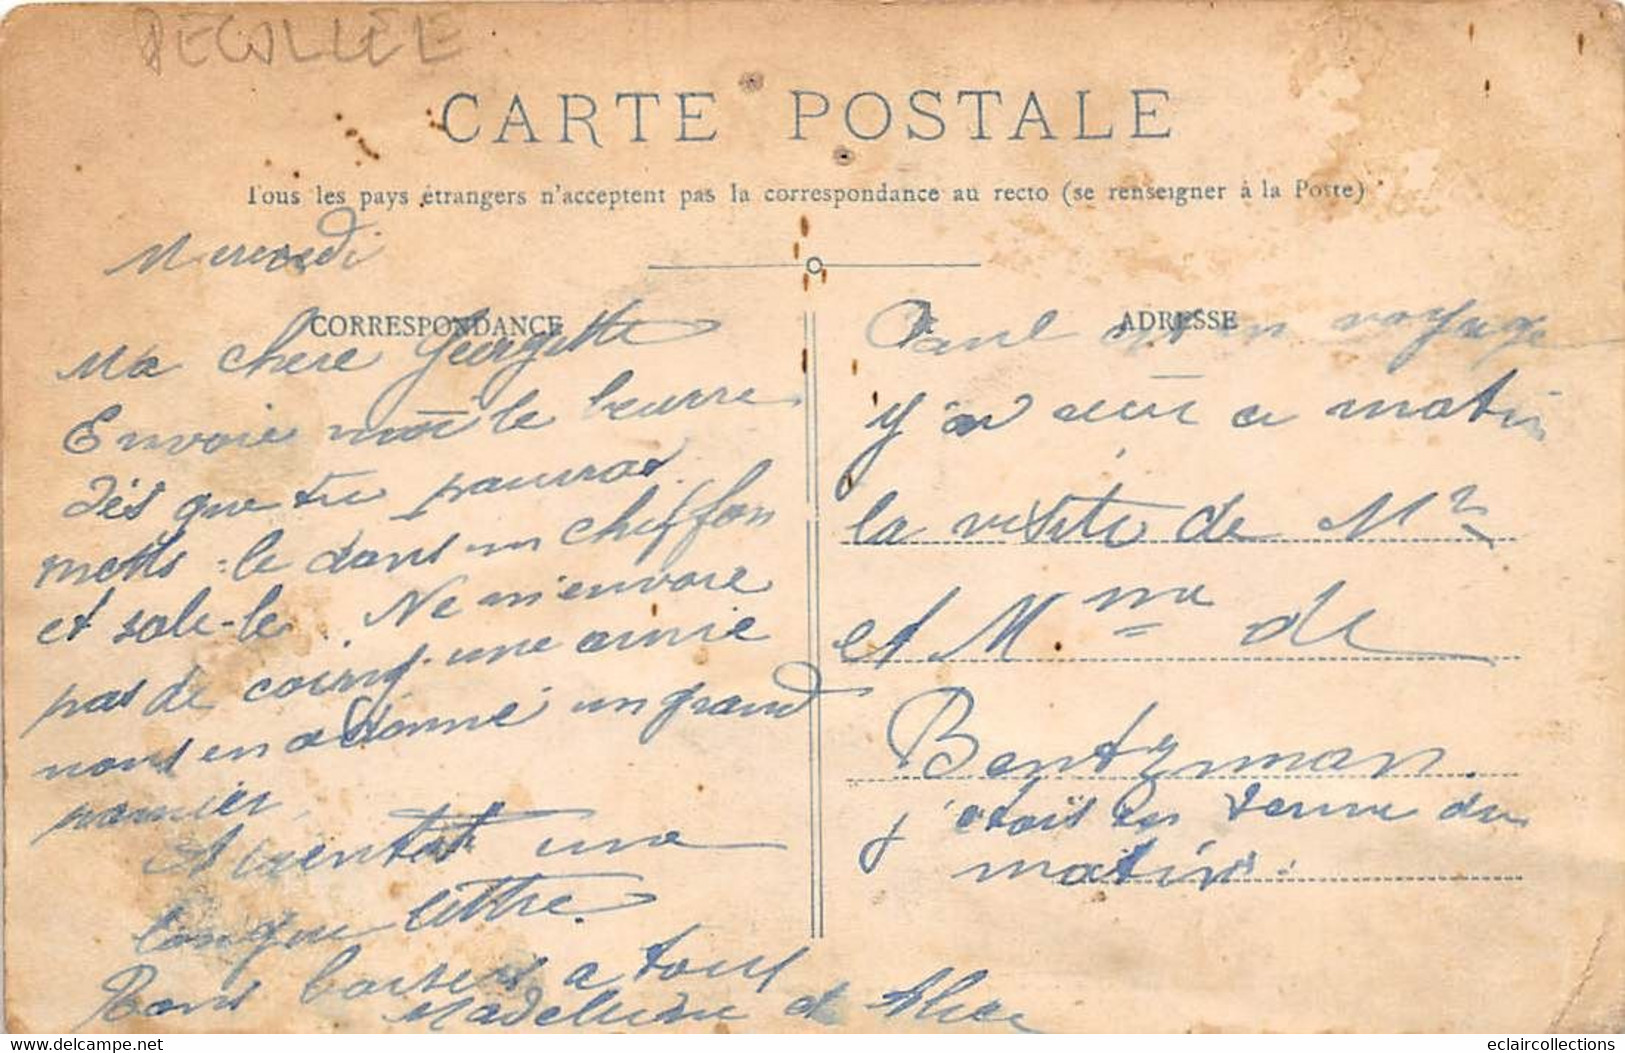 DECOLLÉE
CARTE POSTALE
Tous les pays étrangers n'acceptent pas la correspondance au recto (se renseigner à la Poste)
Mercredi
CORRESPONDANCE
Ma chere Georgette
Envoie moi le beurre
dès que tu pourras
mets-le dans un chiffon
et sale-le. Ne m'envoie
pas de coing. une amie
nous en a donné un grand
panier.
A bientôt une
longue lettre.
Bons baisers a tous
Madeleine et Alice
ADRESSE
Paul est en voyage
J'ai eu ce matin
la visite de Mr
et Mme de
Bentzman.
j'etais en tenue du
matin.
eclaircollections